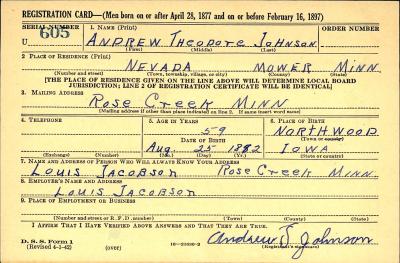 REGISTRATION CARD—(Men born on or after April 28, 1877 and on or before February 16, 1897)
SERIAL NUMBER 1. NAME (Print)
U 605 ANDREW THEODORE JOHNSON
(First) (Middle) (Last)
2. PLACE OF RESIDENCE (Print)
NEVADA MOWER MINN
(Number and street) (Town, township, village, or city) (County) (State)
[THE PLACE OF RESIDENCE GIVEN ON THE LINE ABOVE WILL DETERMINE LOCAL BOARD
JURISDICTION; LINE 2 OF REGISTRATION CERTIFICATE WILL BE IDENTICAL]
3. MAILING ADDRESS
ROSE CREEK MINN
[Mailing address if other than place indicated on line 2. If same insert word same]
4. TELEPHONE 5. AGE IN YEARS 6. PLACE OF BIRTH
59 NORTHWOOD
DATE OF BIRTH (Town or county)
Aug. 25 1882 IOWA
(Exchange) (Number) (Mo.) (Day) (Yr.) (State or country)
7. NAME AND ADDRESS OF PERSON WHO WILL ALWAYS KNOW YOUR ADDRESS
LOUIS JACOBSON ROSE CREEK MINN.
8. EMPLOYER'S NAME AND ADDRESS
LOUIS JACOBSON
9. PLACE OF EMPLOYMENT OR BUSINESS
(Number and street or R. F. D. number) (Town) (County) (State)
I AFFIRM THAT I HAVE VERIFIED ABOVE ANSWERS AND THAT THEY ARE TRUE.
D. S. S. Form 1
(Revised 4-1-42) (over) Andrew T Johnson
(Registrant's signature)